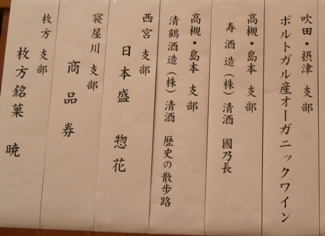 吹田・摂津 支部
ポルトガル産オーガニックワイン
高槻・島本 支部
寿酒造(株)清酒 國乃長
高槻・島本 支部
清鶴酒造(株)清酒 歴史の散歩路
西宮 支部
日本盛 惣花
寝屋川 支部
商品券
枚方 支部
枚方銘菓 暁